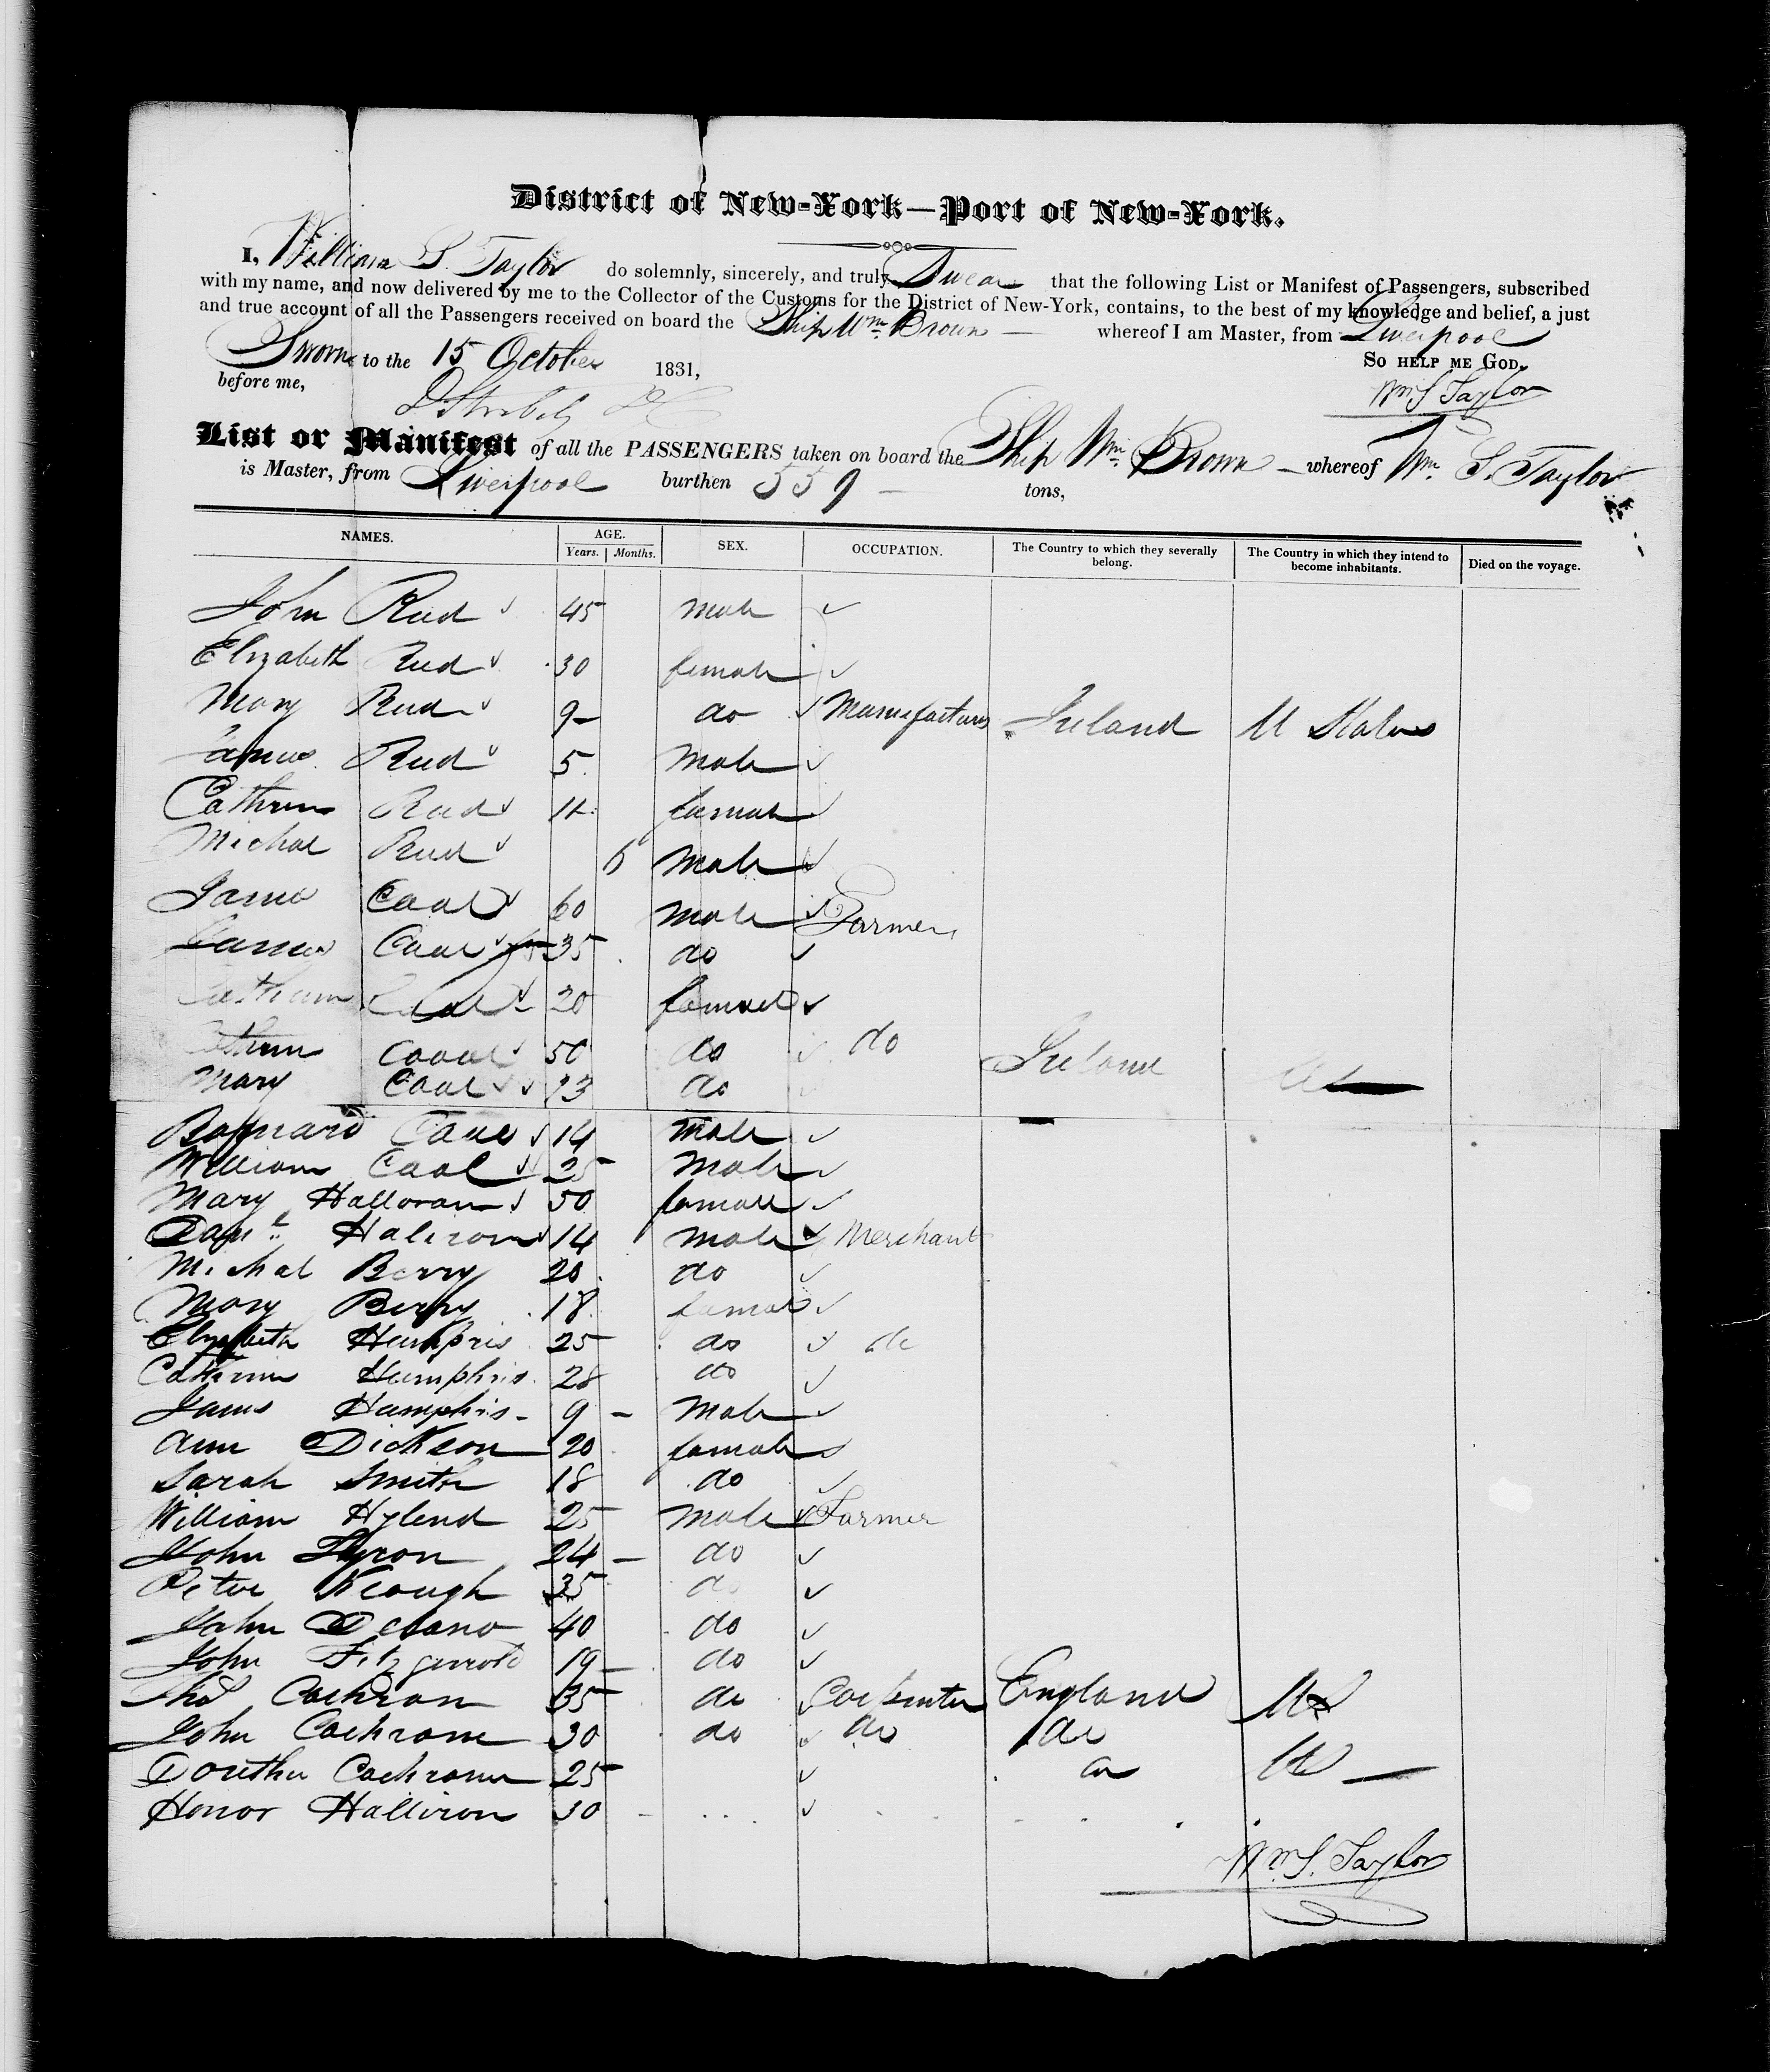 District of New-York—Port of New-York.
I, William S. Taylor do solemnly, sincerely, and truly Swear that the following List or Manifest of Passengers, subscribed
with my name, and now delivered by me to the Collector of the Customs for the District of New-York, contains, to the best of my knowledge and belief, a just
and true account of all the Passengers received on board the Ship Wm. Brown — whereof I am Master, from Liverpool
Sworn to the 15 October 1831, So help me God.
before me, Wm S Taylor
List or Manifest of all the PASSENGERS taken on board the Ship Wm. Brown — whereof Wm. S. Taylor
is Master, from Liverpool burthen 559 — tons,
NAMES. AGE. Years. Months. SEX. OCCUPATION. The Country to which they severally belong. The Country in which they intend to become inhabitants. Died on the voyage.
John Reed 45 male
Elizabeth Reed 30 female
Mary Reed 9 do Manufacturer Ireland U States
James Reed 5 Male
Cathrin Reed female
Michal Reed 6 Male
James Caal 60 male Farmer
James Caal 35 do
Caal 20 female
Caaal 50 do do Ireland
Mary Caal do
Barnard Caal 14 male
William Caal 25 Male
Mary Halloran 50 female
Danl. Haliron 14 Male Merchant
Michal Berry 20 do
Mary Berry 18 female
Elizabeth Humpris 25 do do
Cathrin Humphris 28 do
James Humphris - 9 - Male
Ann Dickson 20 female
Sarah Smith 18 do
William Hylend 25 male Farmer
John Tyron 24 - do
Peter Keough 35 do
John Delano 40 do
John Fitzgerrold 19 - do
Thos Cochran 35 do Carpenter England US
John Cochrane 30 do do do
Cochrane 25 do US —
Honor Halliron 30
Wm S. Taylor